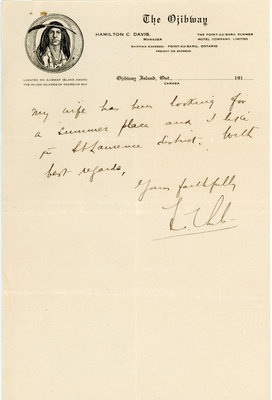 The Ojibway
HAMILTON C. DAVIS,
MANAGER
THE POINT-AU-BARIL SUMMER
HOTEL COMPANY, LIMITED
SHIPPING ADDRESS: POINT-AU-BARIL, ONTARIO
FREIGHT OR EXPRESS
LOCATED ON OJIBWAY ISLAND AMONG
THE 30,000 ISLANDS OF GEORGIAN BAY
Ojibway Island, Ont., 191
CANADA
My wife has been looking for
a summer place and I like
St Lawrence district. With
best regards,
Yours faithfully